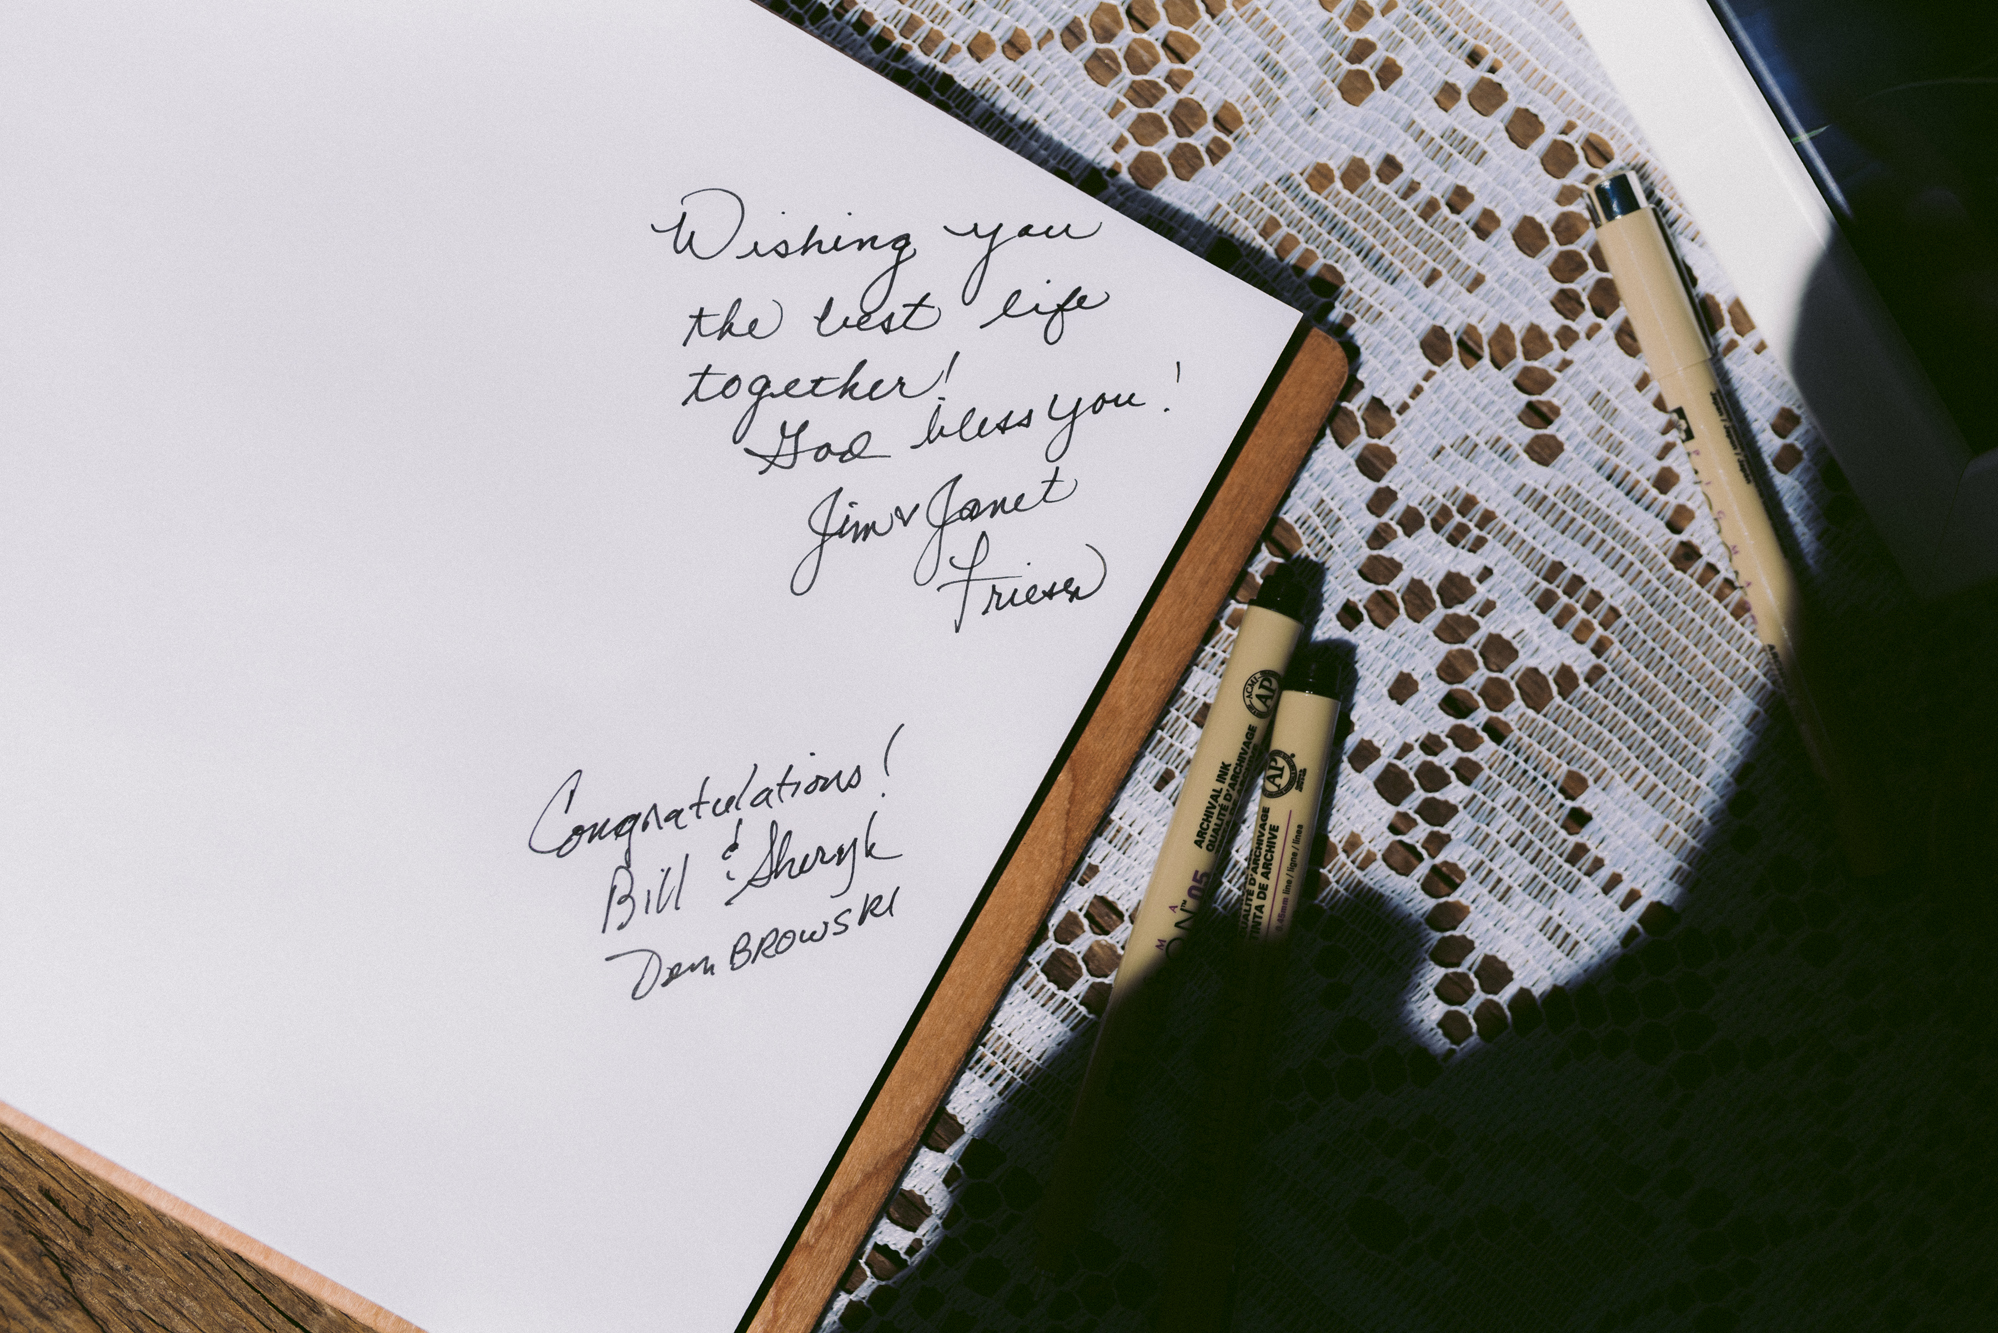 Wishing you
the best life
together!
God bless you!
Jim & Janet
Friesen
Congratulations!
Bill & Sheryl
Dem BROWSKI
AP
ARCHIVAL INK
QUALITÉ D'ARCHIVAGE
05
AP
QUALITÉ D'ARCHIVAGE
TINTA DE ARCHIVE
0.45mm line / ligne / línea